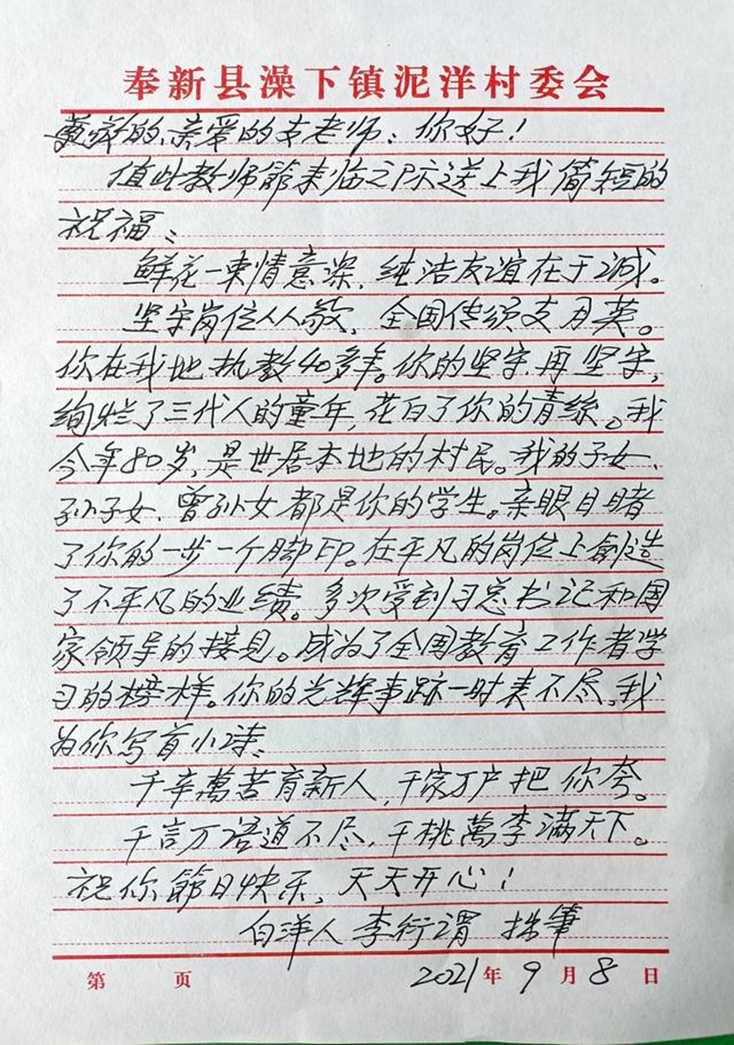 奉新县澡下镇泥洋村委会
尊敬的、亲爱的支老师：你好！
值此教师節来临之际送上我简短的
祝福：
鲜花一束情意深，纯洁友谊在于诚。
坚守岗位人人敬，全国传颂支月英。
你在我地执教40多年。你的坚守再坚守，
绚烂了三代人的童年，花白了你的青丝。我
今年80岁，是世居本地的村民。我的子女、
孙子女、曾孙女都是你的学生。亲眼目睹
了你的一步一个脚印。在平凡的岗位上創造
了不平凡的业绩。多次受到习总书记和国
家领导的接见。成为了全国教育工作者学
习的榜样。你的光辉事跡一时表不尽，我
为你写首小诗：
千辛萬苦育新人，千家万户把你夸。
千言万语道不尽，千桃萬李满天下。
祝你節日快乐，天天开心！
白洋人 李衍谓 拙筆
第 页 2021年9月8日